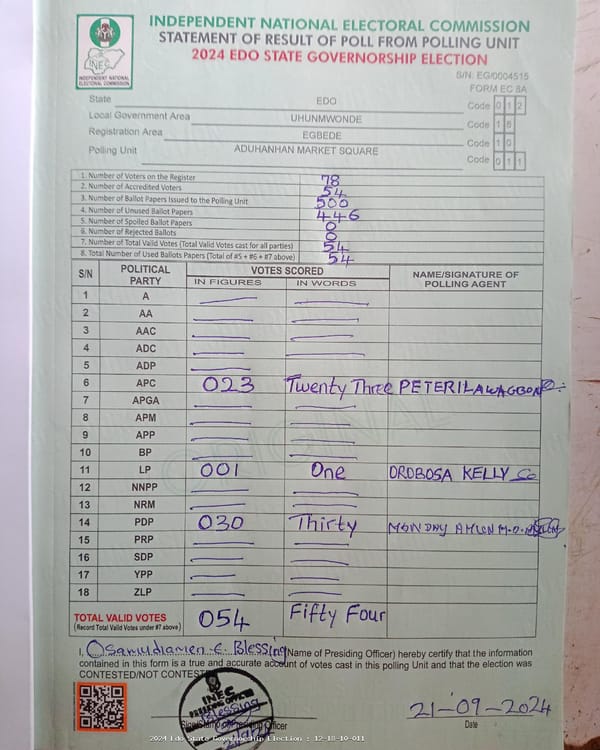 INDEPENDENT NATIONAL ELECTORAL COMMISSION
STATEMENT OF RESULT OF POLL FROM POLLING UNIT
2024 EDO STATE GOVERNORSHIP ELECTION
INEC
INDEPENDENT NATIONAL ELECTORAL COMMISSION
S/N: EG/0004515
FORM EC 8A
State EDO Code 0 1 2
Local Government Area UHUNMWONDE Code 1 8
Registration Area EGBEDE Code 1 0
Polling Unit ADUHANHAN MARKET SQUARE Code 0 1 1
1. Number of Voters on the Register 78
2. Number of Accredited Voters 54
3. Number of Ballot Papers Issued to the Polling Unit 500
4. Number of Unused Ballot Papers 446
5. Number of Spoiled Ballot Papers 0
6. Number of Rejected Ballots 0
7. Number of Total Valid Votes (Total Valid Votes cast for all parties) 54
8. Total Number of Used Ballots Papers (Total of #5 + #6 + #7 above) 54
S/N POLITICAL PARTY VOTES SCORED NAME/SIGNATURE OF POLLING AGENT
IN FIGURES IN WORDS
1 A
2 AA
3 AAC
4 ADC
5 ADP
6 APC 023 Twenty Three PETER ILAWAGBON
7 APGA
8 APM
9 APP
10 BP
11 LP 001 One OROBOSA KELLY
12 NNPP
13 NRM
14 PDP 030 Thirty MONDAY
15 PRP
16 SDP
17 YPP
18 ZLP
TOTAL VALID VOTES 054 Fifty Four
(Record Total Valid Votes under #7 above)
I, Osamudiamen E. Blessing (Name of Presiding Officer) hereby certify that the information
contained in this form is a true and accurate account of votes cast in this polling Unit and that the election was
CONTESTED/NOT CONTESTED
INEC
Officer
21-09-2024
Date
2024 Edo State Governorship Election : 12-18-10-011